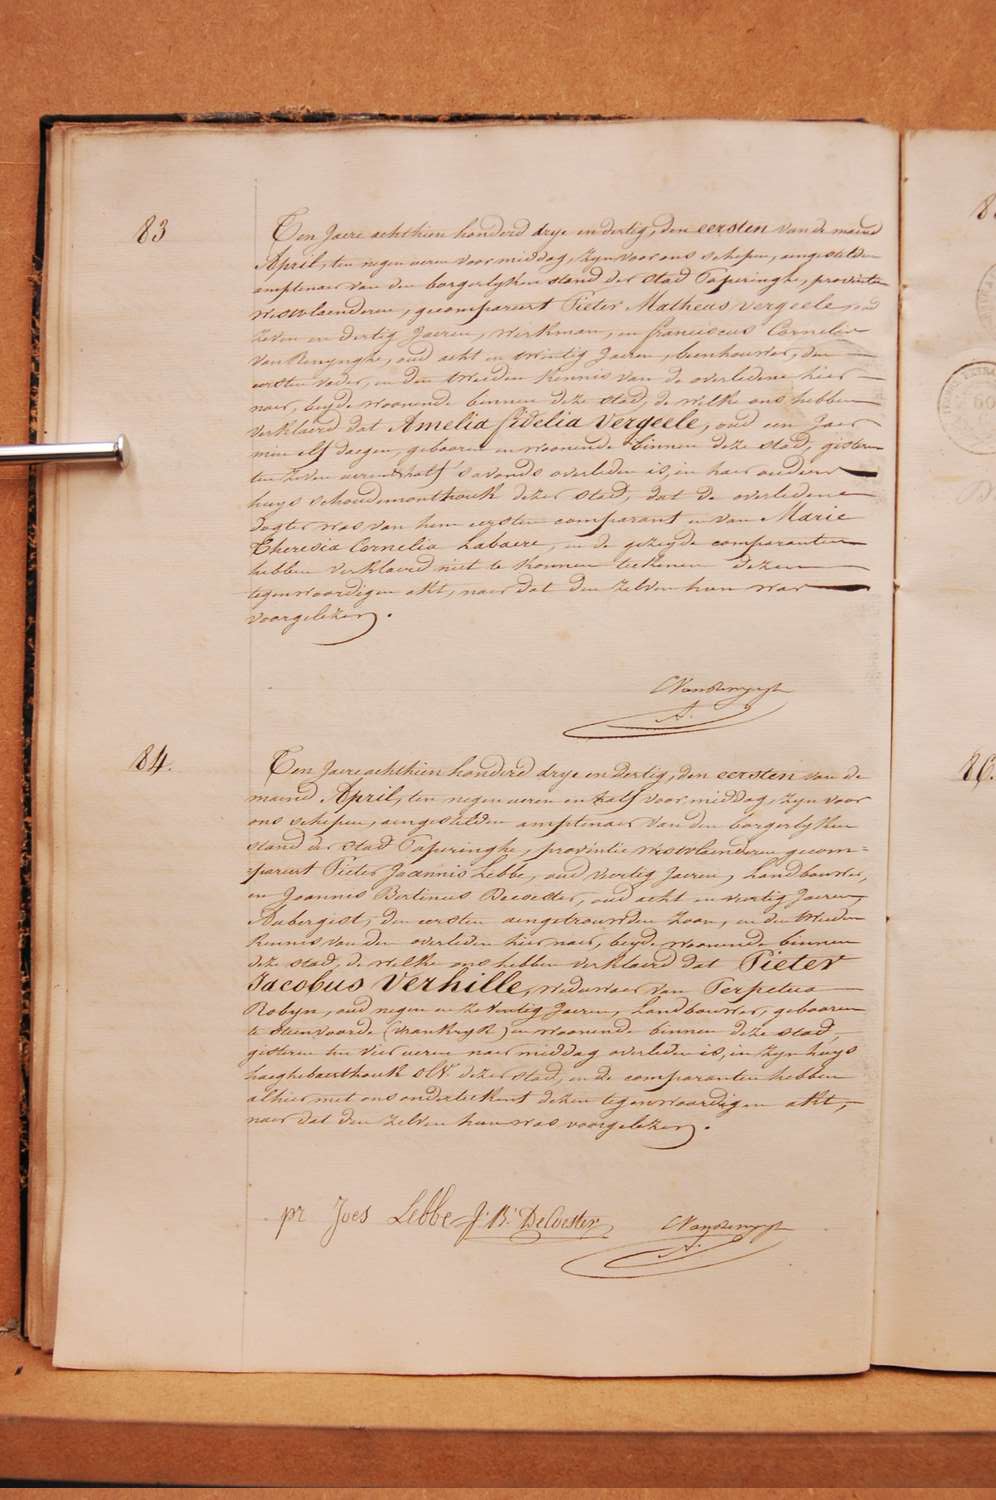 83
Ten Jaere achthien honderd drye en dertig, den eersten van de maend
April, ten negen ueren voor middag, zyn voor ons schepen, aengestelden
amptenaer van den borgerlyken stand der stad Poperinghe, provintie
Westvlaenderen, gecompareert Pieter Matheus Vergeele, oud
zeven en dertig Jaeren, Werkman, en franciscus Cornelis
Van Renynghe, oud acht en twintig Jaeren, beenhouwer, den
eersten vader, en den tweeden kennis van de overledene hier
naer, beyde woonende binnen deze stad, de welke ons hebben
verklaerd dat Amelia fidelia Vergeele, oud een Jaer
min elf daegen, gebooren en woonende binnen deze stad, gisteren
ten zeven ueren half s'avonds overleden is, in haer ouders
huys schoudemonthouk dezer stad, dat de overledene
dogter was van hem eersten comparant en van Marie
Theresia Cornelia Labaere, en de gezeyde comparanten
hebben verklaerd niet te konnen teekenen dezen
tegenwoordigen akt, naer dat den zelven hun was
voorgelezen.
CVanRenyngh
84.
Ten Jaere achthien honderd drye en dertig, den eersten van de
maend April, ten negen ueren en half voor middag, zyn voor
ons schepen, aengestelden amptenaer van den borgerlyken
stand der stad Poperinghe, provintie Westvlaenderen gecom=
=pareert Pieter Joannis Lebbe, oud veertig Jaeren, Landbouwer,
en Joannes Bertinus Decoester, oud acht en veertig Jaeren,
Aubergist, den eersten aengetrouwden zoon, en den tweeden
kennis van den overleden hier naer, beyde woonende binnen
deze stad, de welke ons hebben verklaerd dat Pieter
Jacobus Verhille, weduwaer van Perpetua
Robyn, oud negen en zeventig Jaeren, Landbouwer, gebooren
te Steenvoorde (Vrankryk) en woonende binnen deze stad,
gisteren ten vier ueren naer middag overleden is, in zyn huys
haeghebaerthouk dezer stad, en de comparanten hebben
alhier met ons onderteekent dezen tegenwoordigen akt,
naer dat den zelven hun was voorgelezen.
pr Joes Lebbe J: B: DeCoester CVanRenyngh